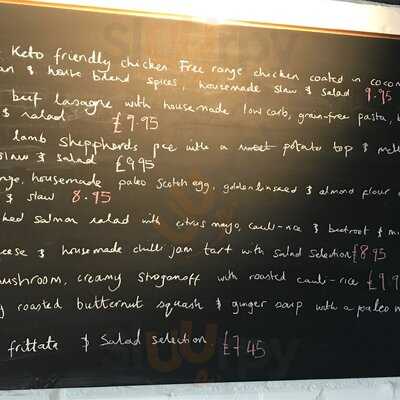 Keto friendly chicken Free range chicken coated in cocon
an & house blend spices, housemade slaw & salad 9.95
beef lasagne with housemade low carb, grain-free pasta, b
& salad £9.95
lamb sheppherds pie with a sweet potato top & mel
slaw & salad £9.95
nge, housemade paleo scotch egg, golden linseed & almond flour
& slaw 8.95
ked salmon salad with citrus mayo, cauli-rice & beetroot & mi
eese & housemade chilli jam tart with salad selection £8.95
mushroom, creamy stroganoff with roasted cauli-rice £9.9
y roasted butternut squash & ginger soup with a paleo m
frittata & salad selection. £7.45